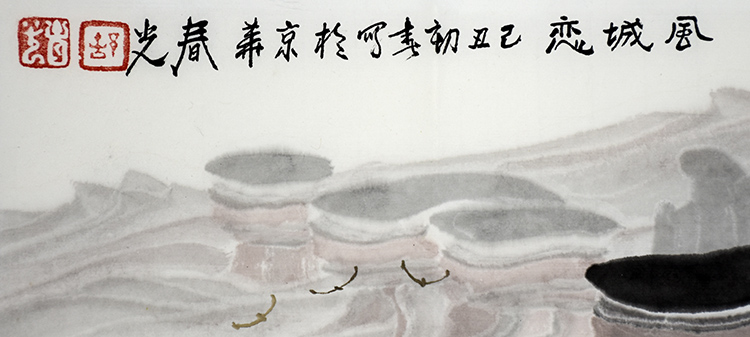 風城恋 己丑初春写於京華 春光